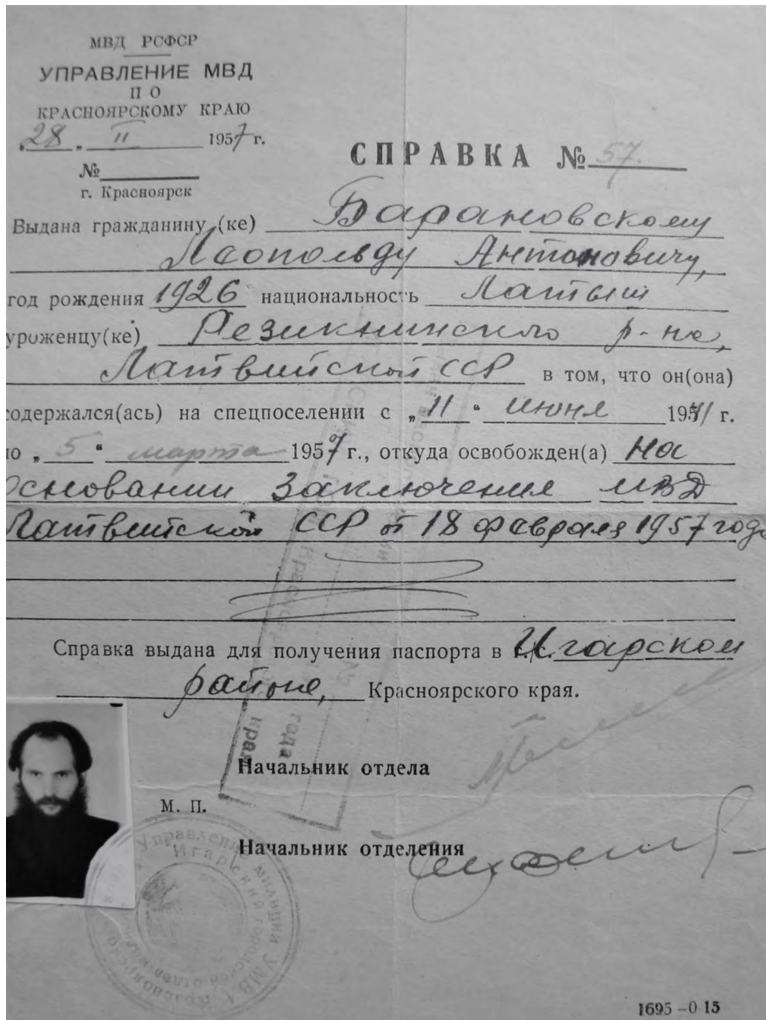 МВД РСФСР
УПРАВЛЕНИЕ МВД
ПО
КРАСНОЯРСКОМУ КРАЮ
„28 „ II 1957 г.
№
г. Красноярск
СПРАВКА № 57.
Выдана гражданину (ке) Барановскому
Леопольду Антоновичу,
год рождения 1926 национальность Латыш
уроженцу(ке) Резикнинского р-на,
Латвийской ССР в том, что он(она)
содержался(ась) на спецпоселении с „11“ июня 1941 г.
по „5“ марта 1957 г., откуда освобожден(а) На
основании Заключения МВД
Латвийской ССР от 18 февраля 1957 года
Справка выдана для получения паспорта в Игарском
районе, Красноярского края.
Начальник отдела
М. П.
Начальник отделения
Управление милиции УМВД Красноярского
Игарский городской отдел милиции
года
края
1695-0 15